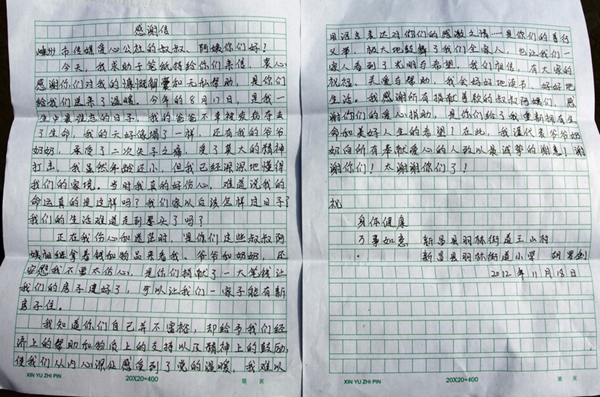 感谢信
嵊州市传媒爱心公社的叔叔、阿姨你们好!
今天，我来助于笔纸将给你们来信，衷心
感谢你们对我的满腔的爱和无私帮助，是你们
给我们送来了温暖，今年的8月17日，是我一
生中最难忘的日子，我的爸爸不幸被疾病夺去
了生命，我的天好像塌了一样，还有我的爷爷
奶奶，承受了二次失子之痛，受了莫大的精神
打击，我虽然年龄还小，但我已经深深地懂得
我们的家境。当时我真的好伤心，难道说我的
命运真的是这样吗?我们家以后该怎样过日子?
我们的生活难道走到尽头了吗?
正在我伤心和迷茫时，是你们这些叔叔阿
姨相继拿着钱和物品来看我、爷爷和奶奶，还
安慰我不要太伤心，是你们捐献了一大笔钱让
我们的房子建好了，可以让我们一家子能有新
房子住。
我知道你们自己并不富裕，却给予我们经
济上的帮助和物质上的支持以及精神上的鼓励，
使我们从内心深处感受到了党的温暖，我难以
XIN YU ZHI PIN
20X20=400
第 页
用语言表达对你们的感激之情……是你们的善行
义举，极大地鼓舞了我们全家人，也让我们一
家人看到了光明与希望。我们相信，有大家的
祝福、关爱与帮助，我会好好地读书，好好地
生活。我感谢所有捐献善款的叔叔阿姨们，感
谢你们的爱心捐助，是你们给了我重新拥有生
命和美好人生的希望!在此，我谨代表爷爷奶
奶向所有奉献爱心的人致以最诚挚的谢意!谢
谢你们!太谢谢你们了!
祝
身体健康
万事如意
新昌县羽林街道王山村
新昌县羽林街道小学
2012年11月18日
XIN YU ZHI PIN
20X20=400
第 页